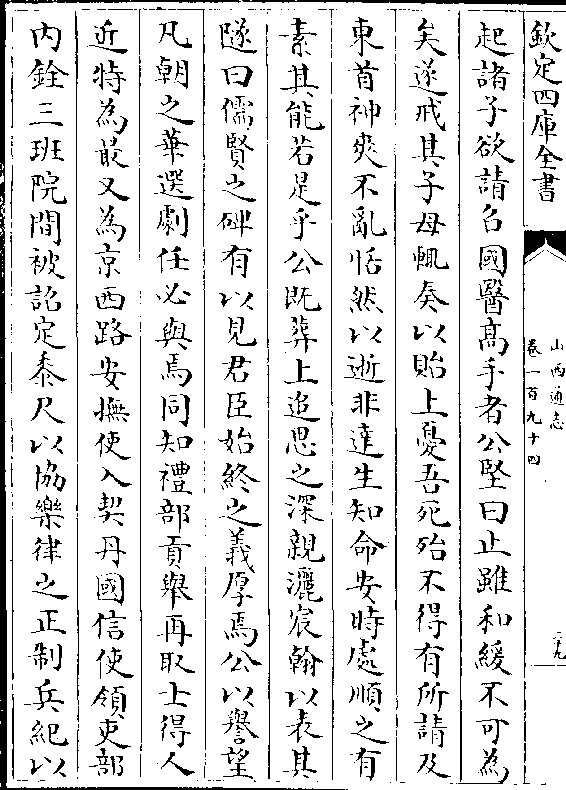 欽定四庫全書
山西通志
卷一百九十四
二九
起諸子欲請召國醫髙手者公堅曰止雖和緩不可為
矣遂戒其子母輒奏以貽上憂吾死殆不得有所請及
東首神爽不亂恬然以逝非達生知命安時處順之有
素其能若是乎公既葬上追思之深親灑宸翰以表其
隧曰儒賢之碑有以見君臣始終之義厚焉公以譽望
凡朝之華選劇任必與焉同知禮部貢舉再取士得人
近特為最又為京西路安撫使入契丹國信使領吏部
内銓三班院間被詔定黍尺以協樂律之正制兵紀以